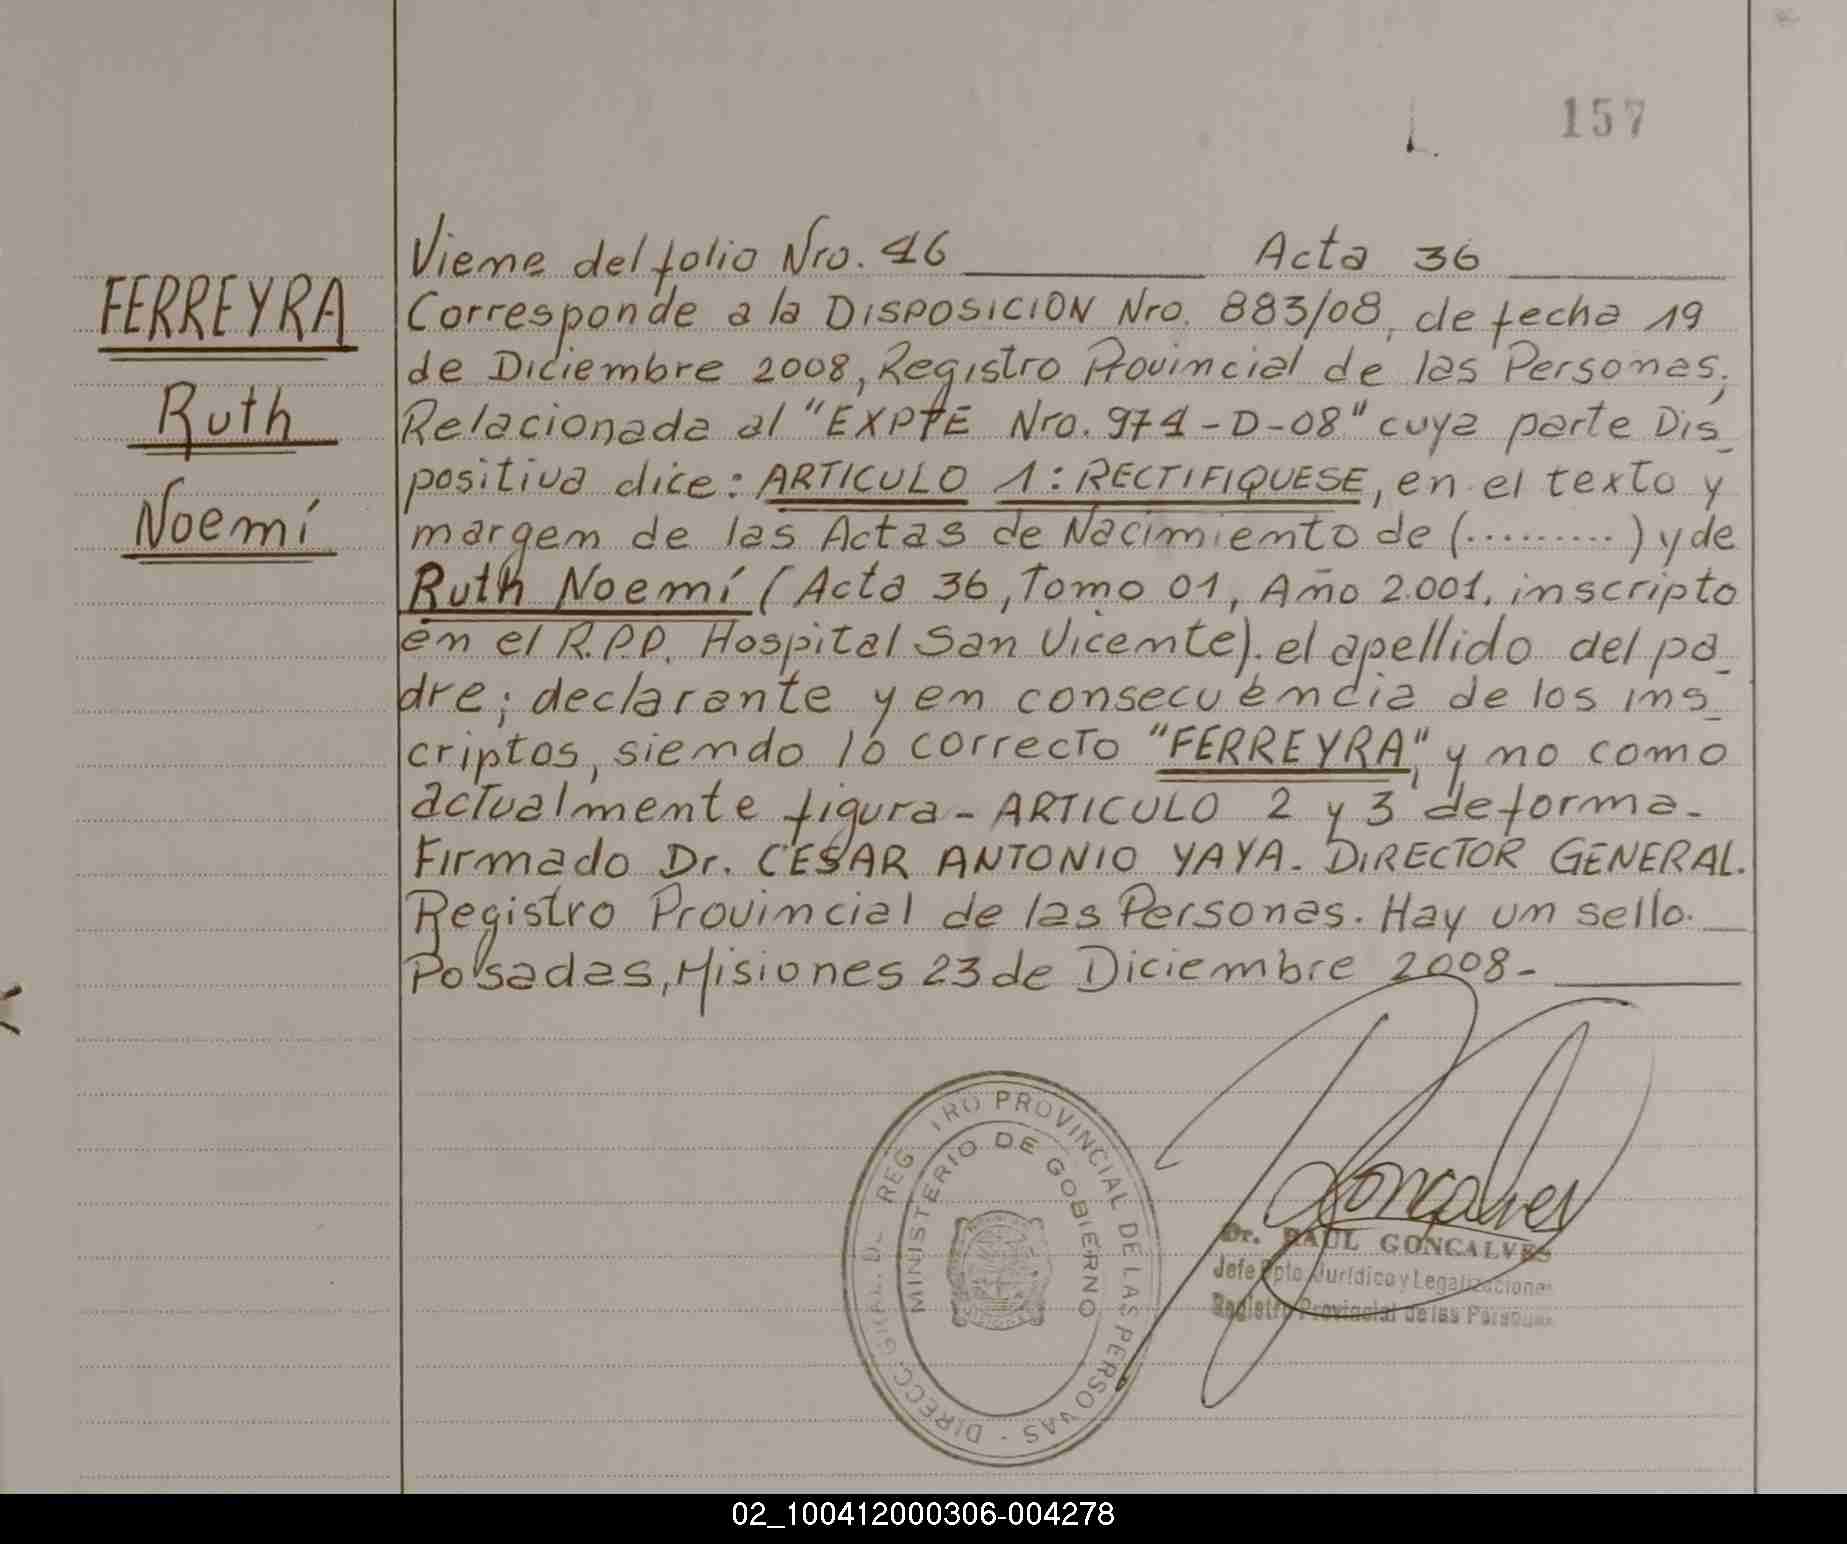 157
FERREYRA
Ruth
Noemí
Viene del folio Nro. 46 Acta 36
Corresponde a la DISPOSICION Nro. 883/08, de fecha 19
de Diciembre 2008, Registro Provincial de las Personas,
Relacionada al "EXPTE Nro. 974-D-08" cuya parte Dis_
positiva dice: ARTICULO 1: RECTIFIQUESE, en el texto y
margen de las Actas de Nacimiento de (..........) y de
Ruth Noemí (Acta 36, Tomo 01, Año 2.001. inscripto
en el R.P.P. Hospital San Vicente). el apellido del pa_
dre; declarante y en consecuencia de los ins_
criptos, siendo lo correcto "FERREYRA", y no como
actualmente figura - ARTICULO 2 y 3 de forma -
Firmado Dr. CESAR ANTONIO YAYA - DIRECTOR GENERAL.
Registro Provincial de las Personas. Hay un sello.
Posadas, Misiones 23 de Diciembre 2008 -
REG TRO PROVINCIAL DE LAS PERSONAS - DIRECC. GRAL. D
MINISTERIO DE GOBIERNO
Goncalves
Dr. RAUL GONCALVES
Jefe Dpto. Jurídico y Legalizaciones
Registro Provincial de las Personas
02_100412000306-004278